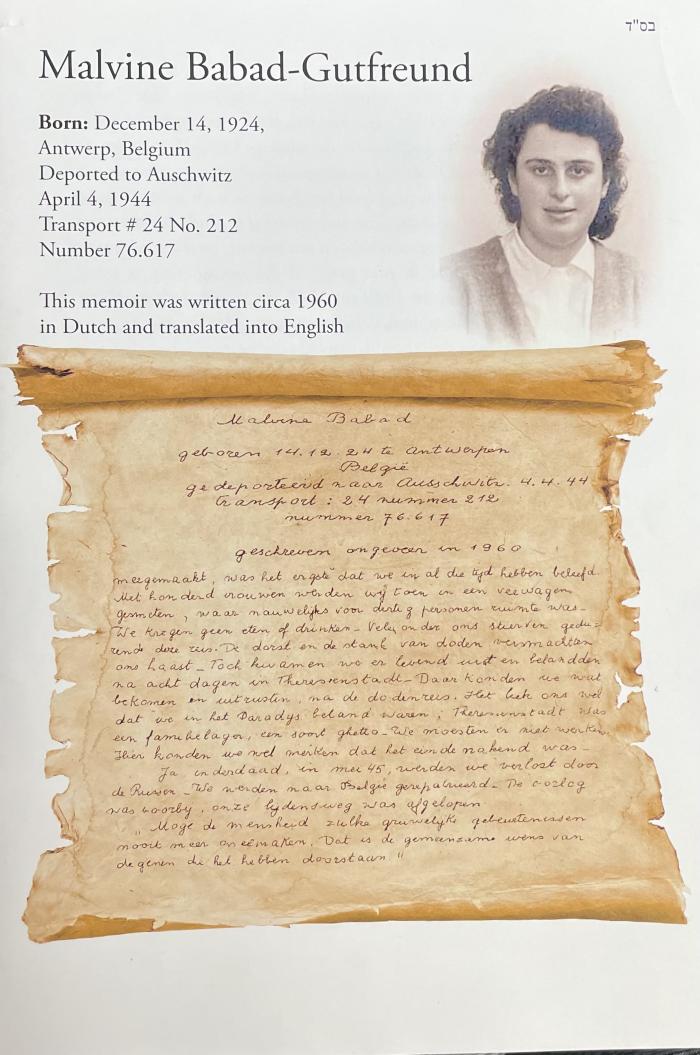 בס"ד
Malvine Babad-Gutfreund
Born: December 14, 1924,
Antwerp, Belgium
Deported to Auschwitz
April 4, 1944
Transport # 24 No. 212
Number 76.617
This memoir was written circa 1960
in Dutch and translated into English
Malvine Babad
geboren 14.12.24 te Antwerpen
België
gedeporteerd naar Ausschwitz. 4.4.44
transport : 24 nummer 212
nummer 76.617
geschreven ongeveer in 1960
meegemaakt, was het ergste dat we in al die tijd hebben beleefd.
Met honderd vrouwen werden wij toen in een veewagen
gesmeten, waar nauwelijks voor dertig personen ruimte was.
We kregen geen eten of drinken. Velen onder ons stierven gedu-
rende deze reis. De dorst en de stank van doden versmachtten
ons haast. Toch kwamen we er levend uit en belandden
na acht dagen in Theresienstadt. Daar konden we wat
bekomen en uitrusten, na de dodenreis. Het leek ons wel
dat we in het Paradys beland waren; Theresienstadt was
een familielager, een soort ghetto. We moesten er niet werken.
Hier konden we wel merken dat het einde nakend was.
Ja inderdaad, in mei 45, werden we verlost door
de Russen. We werden naar België gerepatrieerd. De oorlog
was voorby, onze lydensweg was afgelopen
"Moge de mensheid zulke gruwelyke gebeurtenissen
nooit meer meemaken. Dat is de gemeenzame wens van
degenen die het hebben doorstaan"